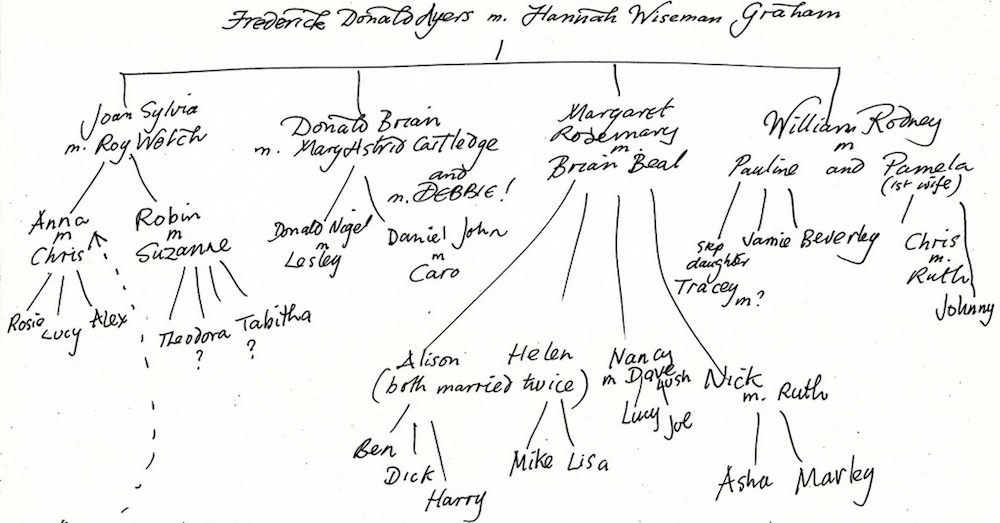 Frederick Donald Ayers m. Hannah Wiseman Graham
Joan Sylvia
m. Roy Welch
Donald Brian
m. Mary Astrid Cartledge
and
m. DEBBIE!
Margaret
Rosemary
m
Brian Beal
William Rodney
m
Pauline and Pamela
(1st wife)
Anna
m
Chris
Robin
m
Suzanne
Donald Nigel
m
Lesley
Daniel John
m
Caro
step
daughter
Tracey
m?
Jamie Beverley
Chris
m.
Ruth
Johnny
Rosie Lucy Alex
Theodora
?
Tabitha
?
Alison Helen
(both married twice)
Nancy
m Dave
Lucy Joe
Nick
m. Ruth
Ben
Dick
Harry
Mike Lisa
Asha Marley